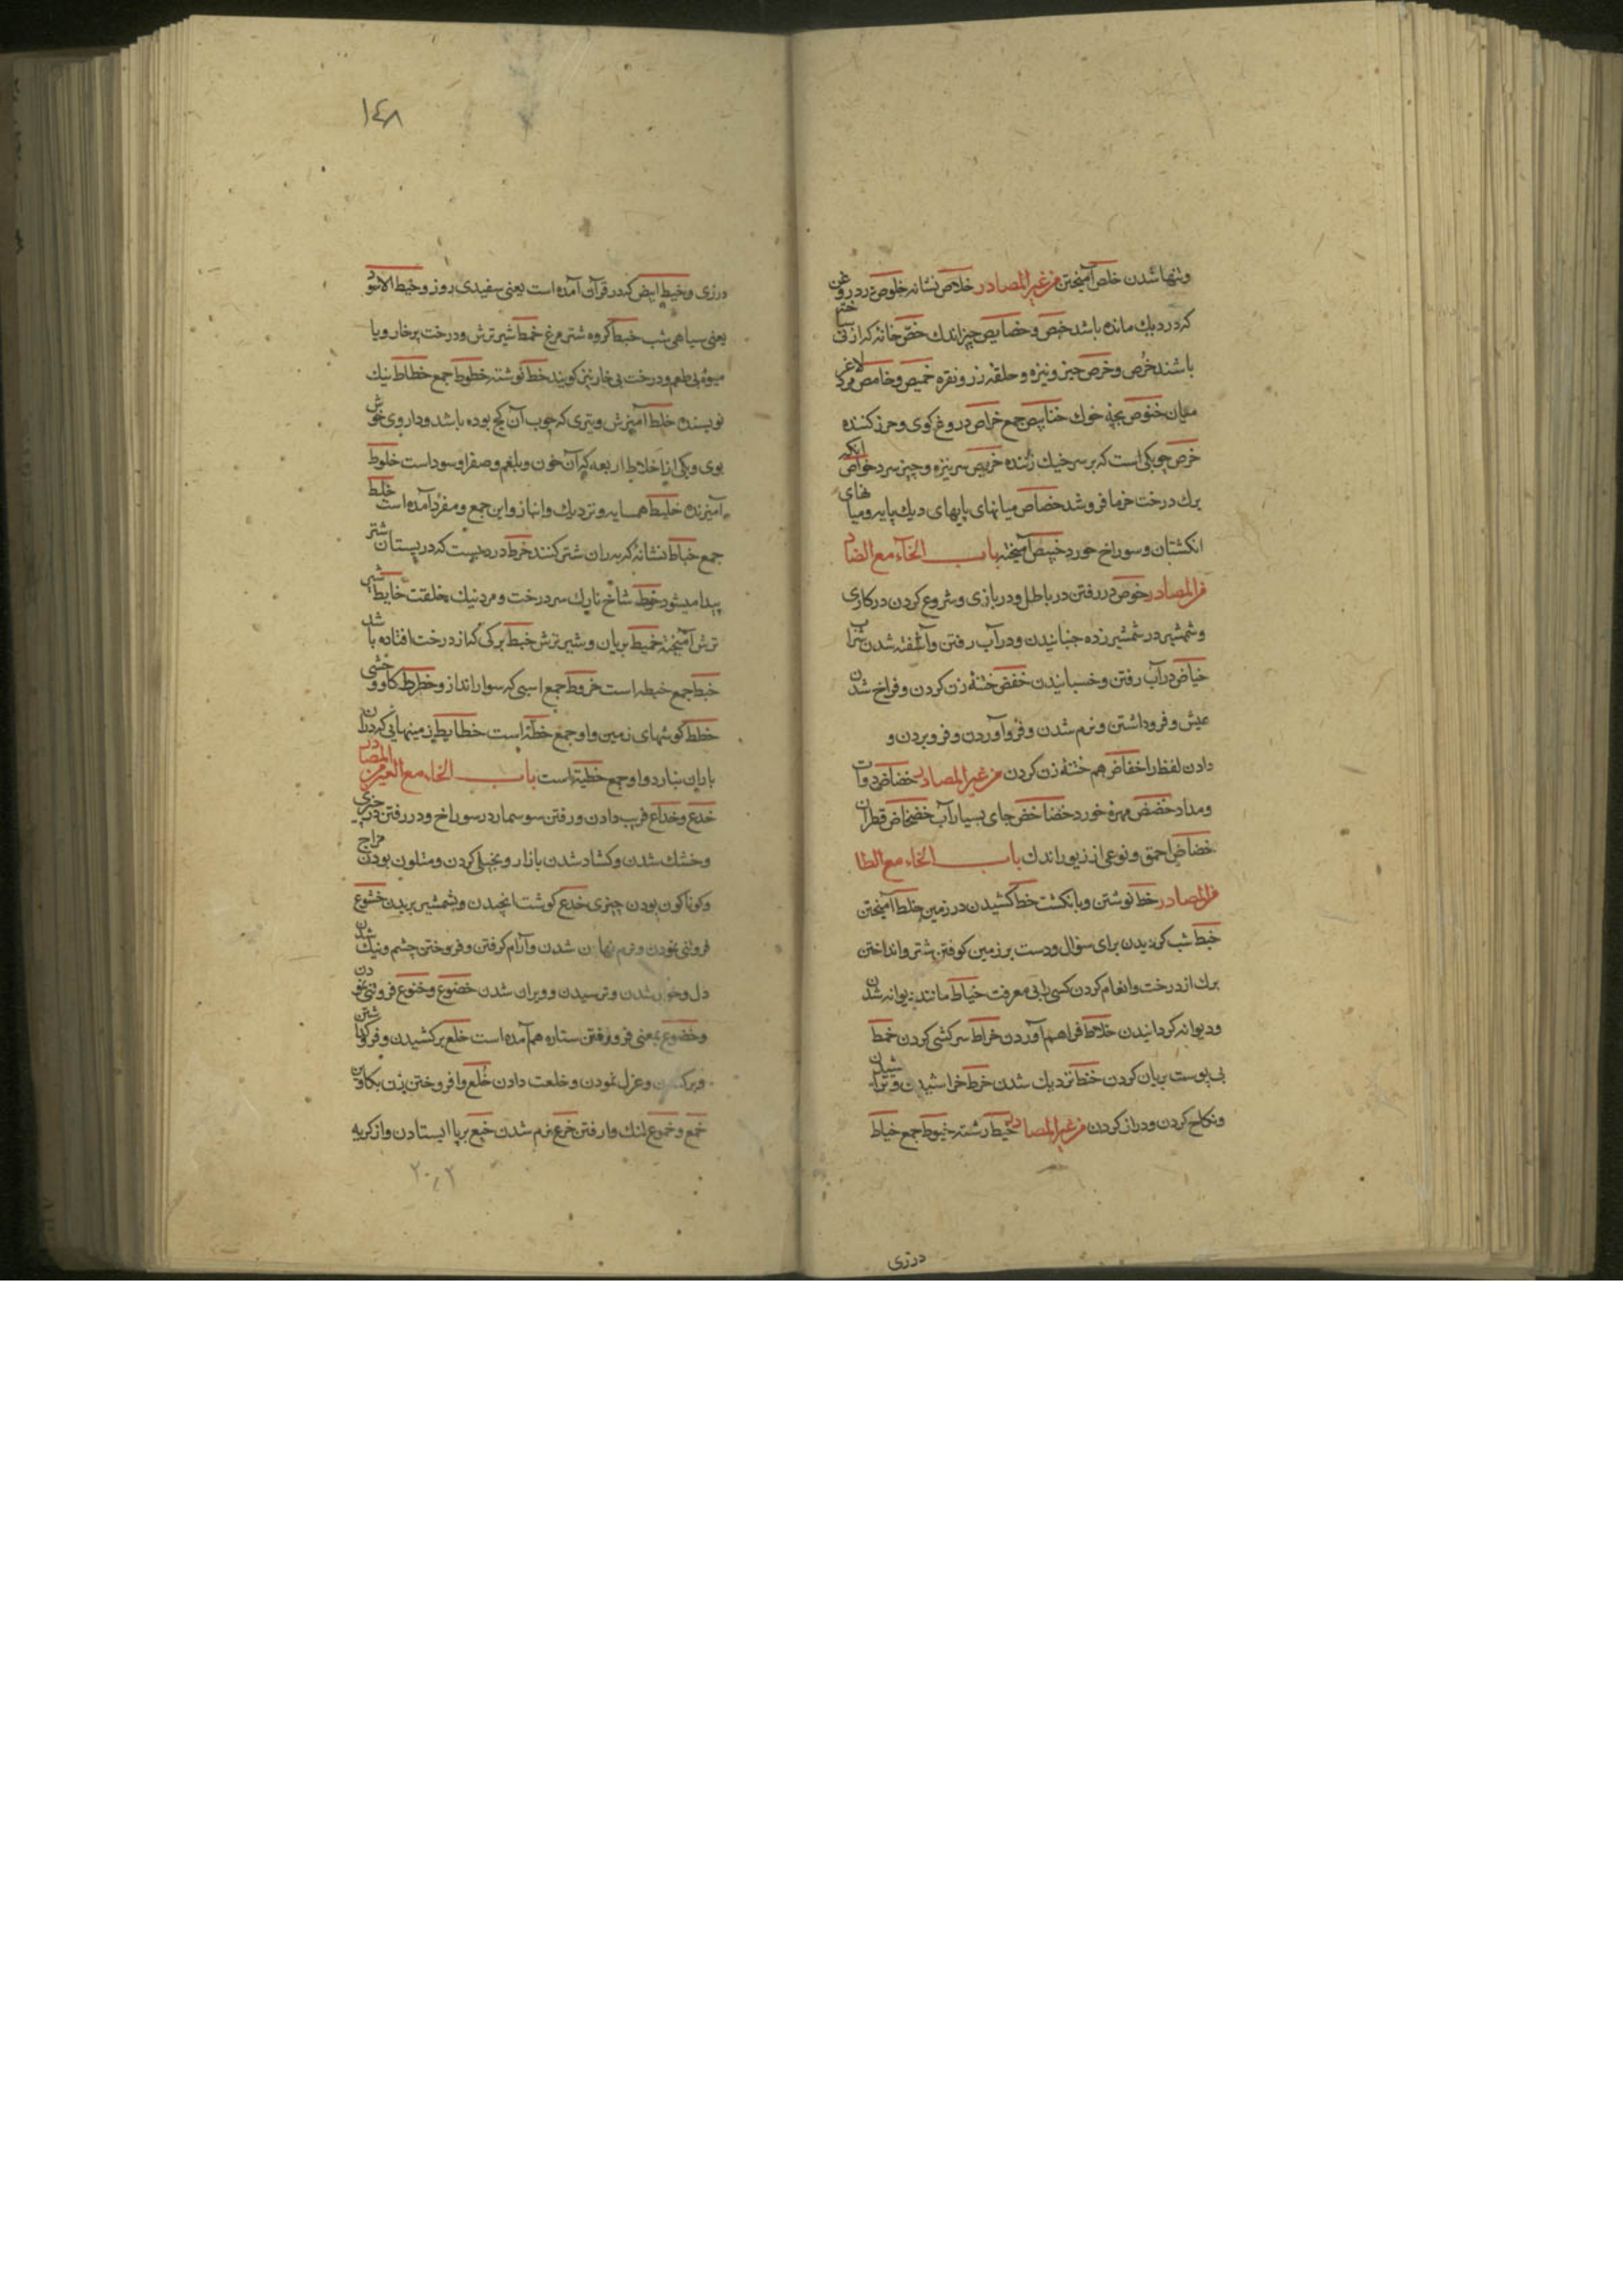 وتنها شدن خلص آمیختن من غیر المصادر خلاص نشانه خلوص درد روغن
که در دیك مانده باشد خص وخصایص چیز اندك خصّ خانه که از نی ساختـ
باشند خُرص وخرص چیز ونیزه وحلقه زر ونقره خمیص وخامص مرد لاغر
میان خنوص بچه خوك خنانیص جمع خراص دروغ کوی وحرز کننده
خرص چوبکی است که بر سر خیك زننده خریص سر نیزه وچیز سرد خواص آنکه
برك درخت خرما فروشد خصاص میانهای پایهای دیك پایه ومیانهای
انکشتان وسوراخ خورد خبیص آمیخته باب الخآء مع الضاد
من المصادر خوض در رفتن در باطل ودر بازی وشروع کردن در کاری
وشمشیر در شمشیر زده جنبانیدن ودر آب رفتن وآشفته شدن شراب
خیاض در آب رفتن وخسبانیدن خفض ختنهٔ زن کردن وفراخ شدن
عیش وفروداشتن ونرم شدن وفروآوردن وفروبردن و
دادن لفظ را خفاض هم ختنهٔ زن کردن من غیر المصادر خضاض دوات
ومداد خضض مهره خورد خضاخض جای بسیار آب خضخاض قطران
خضاض احمق ونوعی از زیور اندك باب الخاء مع الطا
من المصادر خط نوشتن وبانکشت خط کشیدن در زمین خلط آمیختن
خبط شب کردیدن برای سؤال ودست بر زمین کوفتن شتر وانداختن
برك از درخت وانعام کردن کسی را بی معرفت خیاط مانند دیوانه شدن
ودیوانه کردانیدن خلاط فراهم آوردن خراط سرکشی کردن خمط
بی پوست بریان کردن خنط نزدیك شدن خرط خراشیدن وتراشیدن
ونکاح کردن ودراز کردن من غیر المصادر خیط رشته خیوط جمع خیاط
درزی
۱۴۸
درزی وخیط ابیض که در قرآن آمده است یعنی سفیدی روز وخیط الاسود
یعنی سیاهی شب خبط کروه شتر مرغ خمط شیر ترش ودرخت پرخار ویا
میوهٔ بی طعم ودرخت بی خار نیز کویند خط نوشته خطوط جمع خطاط نیك
نویسنده خلط آمیزش وتیری که چوب آن کج بوده باشد وداروی خوش
بوی ویکی از اخلاط اربعه که آن خون وبلغم وصفرا وسوداست خلوط
آمیزنده خلیط همسایه ونزدیك وانباز واین جمع ومفرد آمده است خلط
جمع خباط نشانهٔ که بر ران شتر کنند خرط دردیست که در پستان شتر
پیدا میشود خوط شاخ نازك سر درخت ومرد نیك خلقت خابط شیر
ترش آمیخته خمیط بریان وشیر ترش خبط برکی که از درخت افتاده باشد
خبط جمع خبطه است خروط جمع اسبی که سوار اندازد خطوط کاو وحشی
خطط کوشهای زمین واو جمع خطّه است خطایط زمینهایی که در آن
باران نبارد واو جمع خطیة است باب الخاء مع العین من المصادر
خدع وخداع فریب دادن ورفتن سوسمار در سوراخ ودر رفتن در چیزی
وخشك شدن وکشاد شدن بازار وبخیلی کردن ومتلون بودن مزاج
وکوناکون بودن چیزی خدع کوشت انجیدن وبشمشیر بریدن خشوع
فروتنی نمودن ونرم نهادن شدن وآرام کرفتن وفروختن چشم ونیك شدن
دل وخوار شدن وترسیدن وویران شدن خضوع وخنوع فروتنی نمودن
وخضوع بمعنی فرو رفتن ستاره هم آمده است خلع برکشیدن وفروکذاشتن
وعزل نمودن وخلعت دادن خُلع وافروختن زن بکاوین
خمع وخموع لنك وار رفتن خرع نرم شدن خبع برپا ایستادن واز کریه